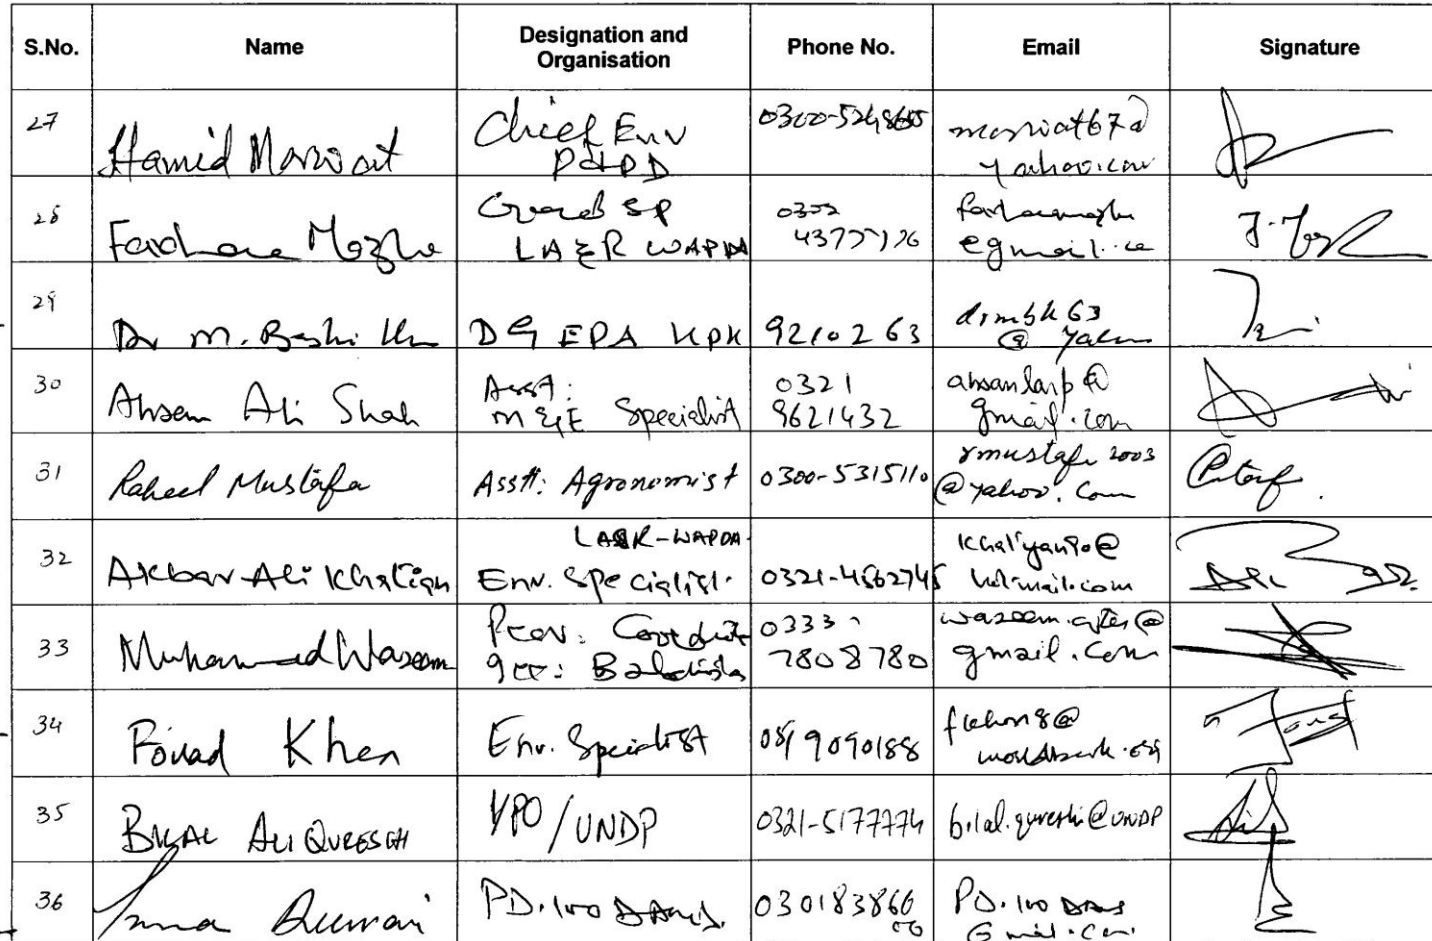 S.No. Name Designation and Organisation Phone No. Email Signature
27 Hamid Marwat Chief Env P&DD 0300-5248665 marwat67@yahoo.com
28 SP LA&R WAPDA 0302
29 Dr M. Bashir Khan DG EPA KPK 9210263 drmbk63 @ Yahoo
30 Ahsan Ali Shah Asst: M&E Specialist 0321 9621432 ahsanlarp@ gmail.com
31 Raheel Mustafa Asstt: Agronomist 0300-5315110 rmustafa2003 @yahoo.com
32 Akbar Ali Khatian LA&R-WAPDA Env. Specialist. 0321-4562745 hotmail.com
33 Muhammad Waseem Prov: 0333 7808780 gmail.com
34 Fowad Khan Env. Specialist 9090188 fkhan8@ worldbank.org
35 BILAL ALI QURESHI /UNDP 0321-5177774 bilal.qureshi@UNDP
36 PD. 100 DAMS. 030183866 PD.100 DAMS Gmail.Com